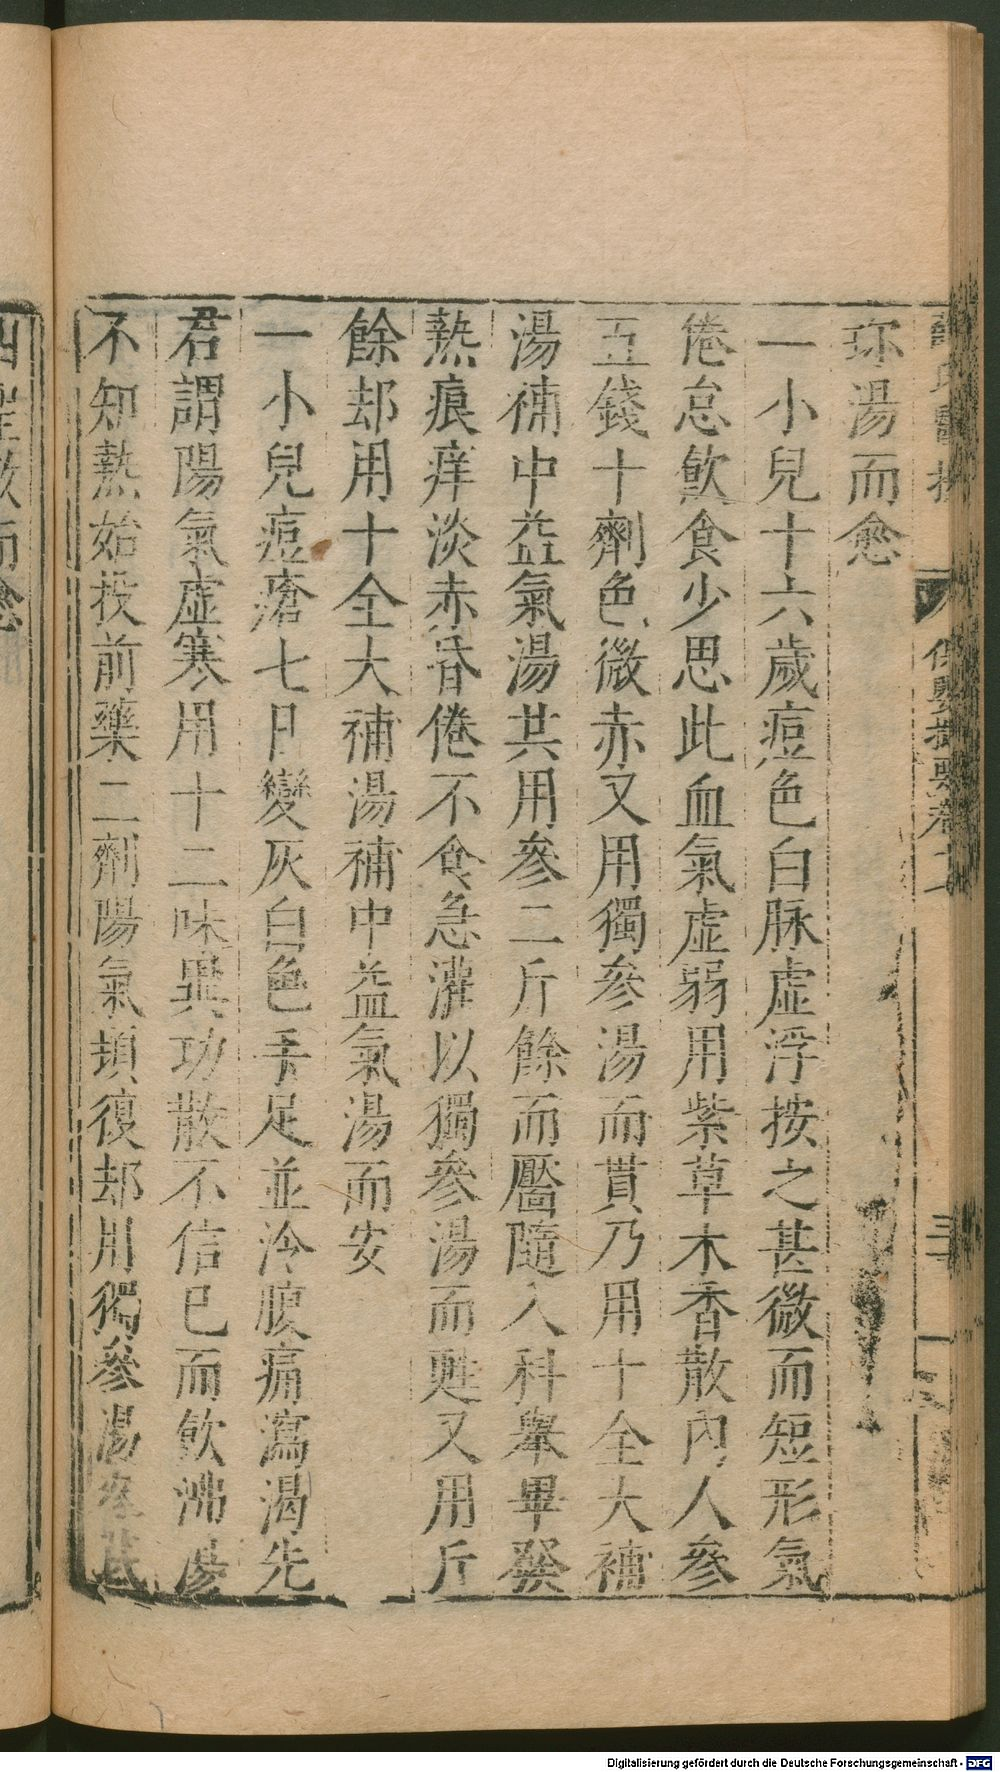 薛氏醫按
保嬰撮要卷十
珎湯而愈
一小兒十六歲痘色白脉虚浮按之甚微而短形氣
倦怠飲食少思此血氣虚弱用紫草木香散内人參
五錢十劑色微赤又用獨參湯而貫乃用十全大補
湯補中益氣湯共用參二斤餘而靨隨入科舉畢發
熱痕痒淡赤昏倦不食急灌以獨參湯而甦又用斤
餘却用十全大補湯補中益氣湯而安
一小兒痘瘡七日變灰白色手足並冷腹痛瀉渴先
君謂陽氣虚寒用十二味異功散不信已而飲沸湯
不知熱始投前藥二劑陽氣頓復却用獨參湯參芪
四聖散而愈
Digitalisierung gefördert durch die Deutsche Forschungsgemeinschaft - DFG